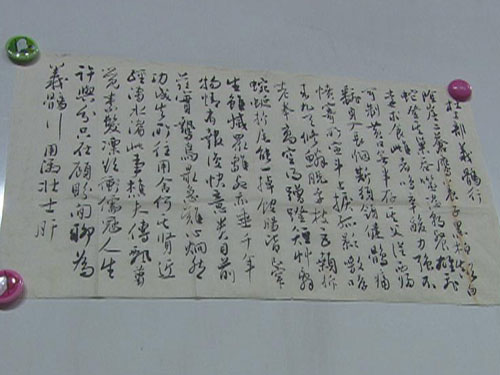 杜甫義鶻行
陰崖有蒼鷹養子黑柏顛白
蛇登其巢吞噬恣朝餐雄飛
遠求食雌者鳴辛酸力強不
可制黃口無半存其父從西歸
翻身入長煙斯須領健鶻痛
憤寄所宣斗上捩孤影噭哮
來九天修鱗脫遠枝巨顙坼
老拳高空得蹭蹬短草辭
蜿蜒折尾能一掉飽腸皆已穿
生雖滅眾雛死亦垂千年
物情有報復快意貴目前
茲實鷙鳥最急難心炯然
功成失所往用舍何其賢近
經潏水湄此事樵夫傳飄蕭
覺素髮凜欲衝儒冠人生
許與分只在顧盼間聊為
義鶻行用激壯士肝